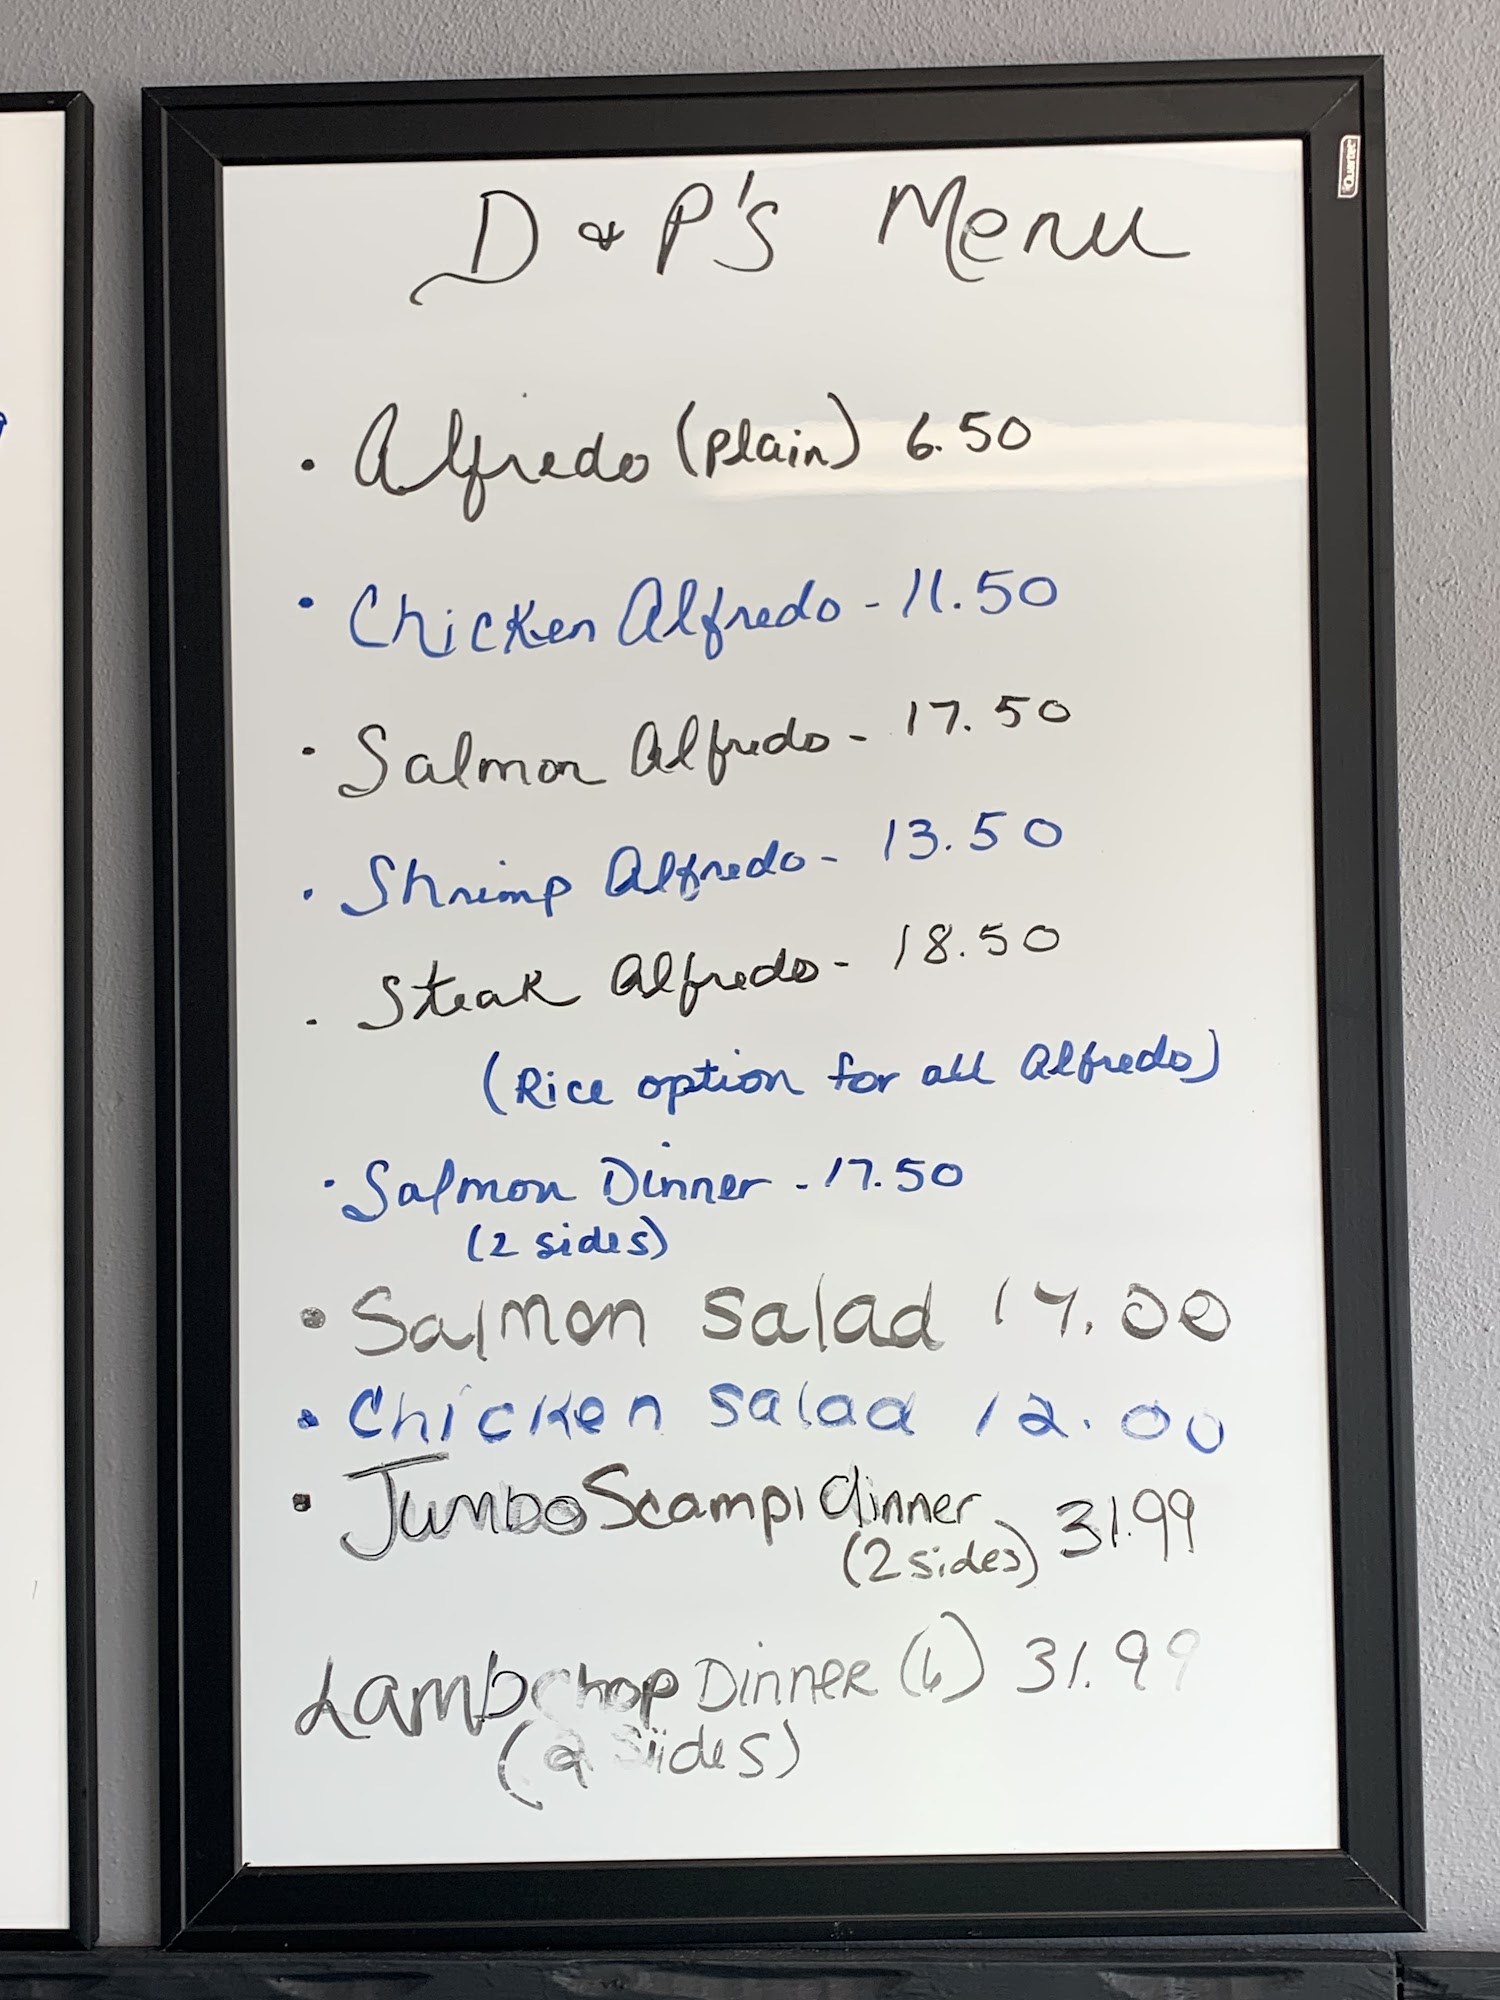 Quartet
D & P's Menu
• Alfredo (plain) 6.50
• Chicken Alfredo - 11.50
• Salmon Alfredo - 17.50
• Shrimp Alfredo - 13.50
• Steak Alfredo - 18.50
(Rice option for all Alfredo)
• Salmon Dinner - 17.50
(2 sides)
• Salmon salad 17.00
• Chicken salad 12.00
• Jumbo Scampi dinner 31.99
(2 sides)
Lambchop Dinner (6) 31.99
(2 Sides)